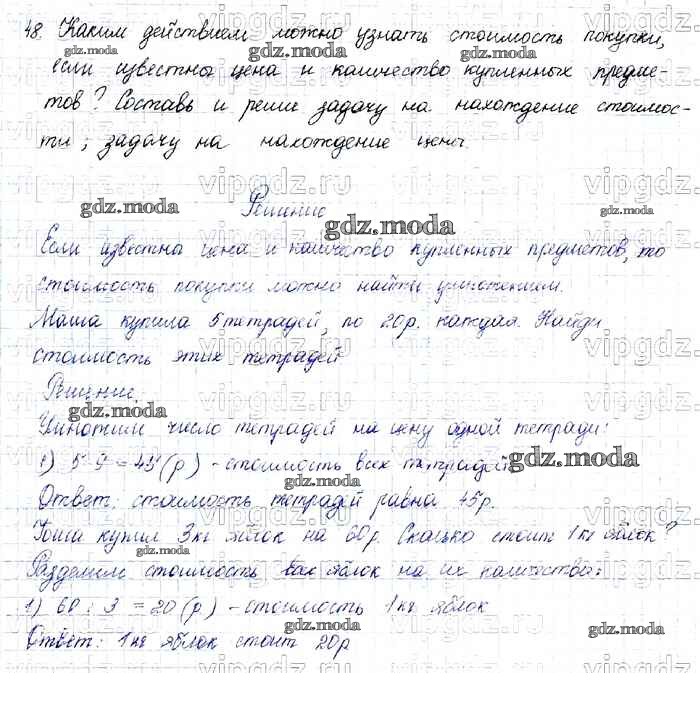 48. Каким действием можно узнать стоимость покупки,
если известны цена и количество купленных предме-
тов? Составь и реши задачу на нахождение стоимос-
ти; задачу на нахождение цены.
Решение
Если известны цена и количество купленных предметов, то
стоимость покупки можно найти умножением.
Маша купила 5 тетрадей, по 20р. каждая. Найди
стоимость этих тетрадей
Решение.
Умножим число тетрадей на цену одной тетради:
1) 5·9=45(р) - стоимость всех тетрадей
Ответ: стоимость тетрадей равна 45р.
Гоша купил 3кг яблок на 60р. Сколько стоит 1кг яблок?
Разделим стоимость всех яблок на их количество:
1) 60:3=20(р) - стоимость 1кг яблок
Ответ: 1кг яблок стоит 20р
vipgdz.ru
gdz.moda